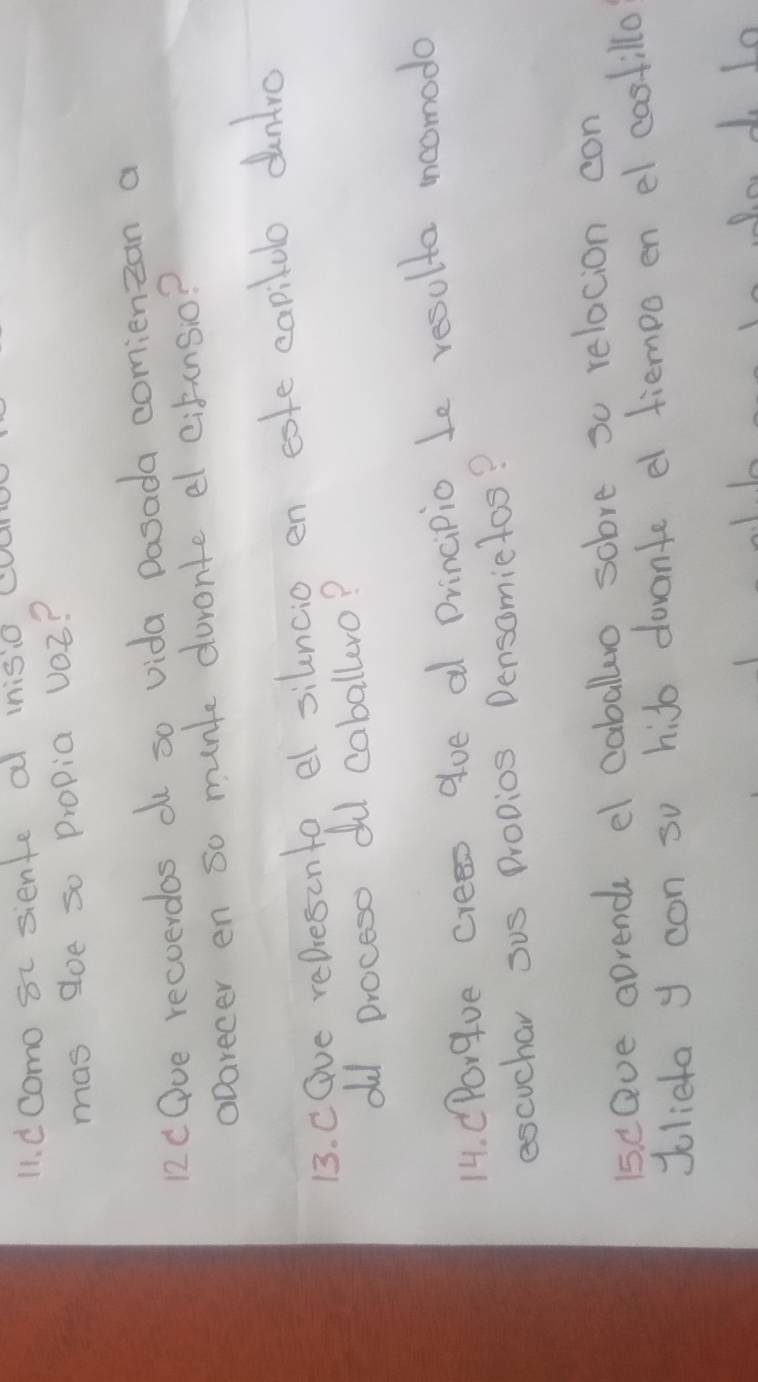 11. ¿Como se siente al inisio cuando
mas que so propia voz?
12 ¿Que recuerdos de so vida pasada comienzan a
aparecer en so mente duronte el cilensio?
13. ¿Que representa el silencio en este capitulo dentro
del proceso del caballero?
14. ¿Porque crees que al principio le resulta incomodo
escuchar sus propios pensamietos?
15. ¿Que aprende el caballero sobre su relacion con
Julieta y con su hijo durante el tiempo en el castillo?